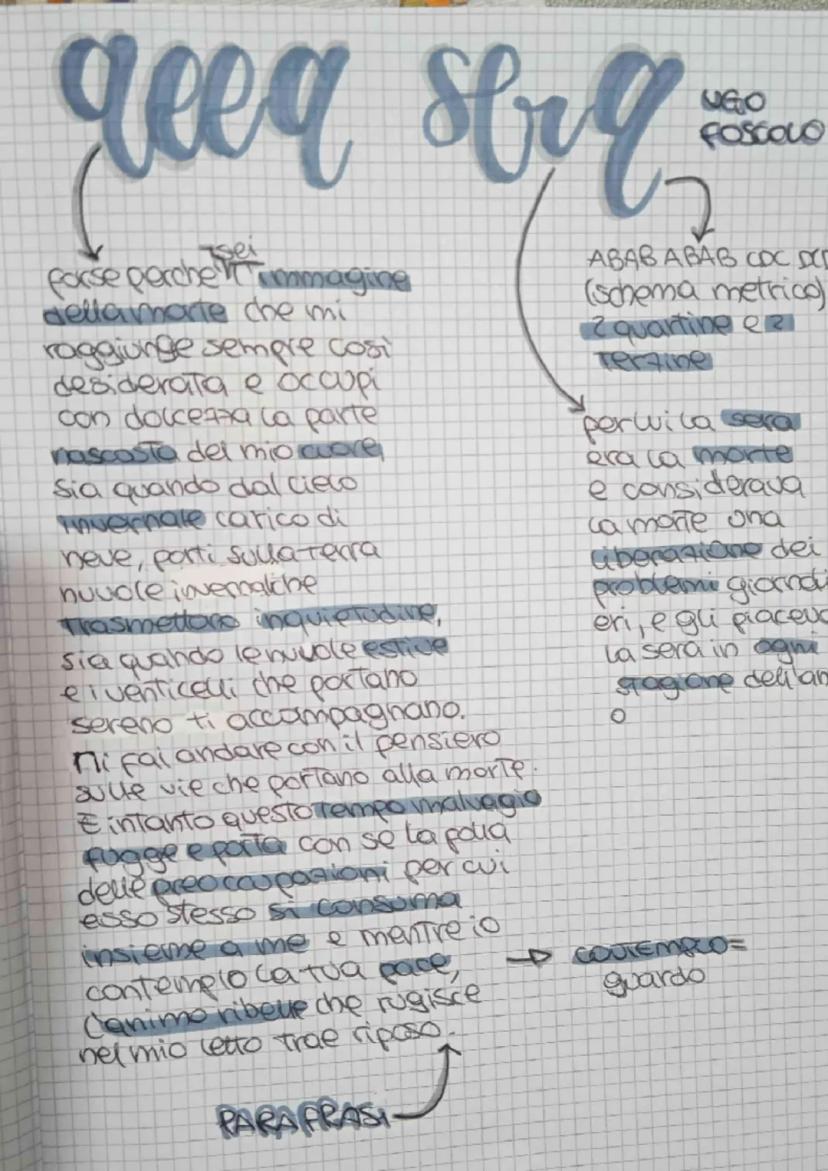 alla sera
UGO
FOSCOLO
forse perche sei
T T immagine
della morte che mi
raggiunge sempre così
desiderata e occupi
con dolcezza la parte
nascosta del mio cuore
sia quando dal cielo
invernale carico di
neve, porti sulla terra
nuvole invernali che
trasmettono inquietudine,
sia quando le nuvole estive
e i venticelli che portano
sereno ti accompagnano.
Mi fai andare con il pensiero
sulle vie che portano alla morte.
E intanto questo tempo malvagio
fugge e porta con se la folla
delle preoccupazioni per cui
esso stesso si consuma
insieme a me e mentre io
contemplo la tua pace,
l'animo ribelle che rugisce
nel mio letto trae riposo.
PARAFRASI
ABAB ABAB CDC DCD
(schema metrico)
2 quartine e 2
terzine
per lui la sera
era la morte
e considerava
la morte una
liberazione dei
problemi giornali
eri, e gli piaceva
la sera in ogni
stagione dell'an
o
→ CONTEMPLO =
guardo